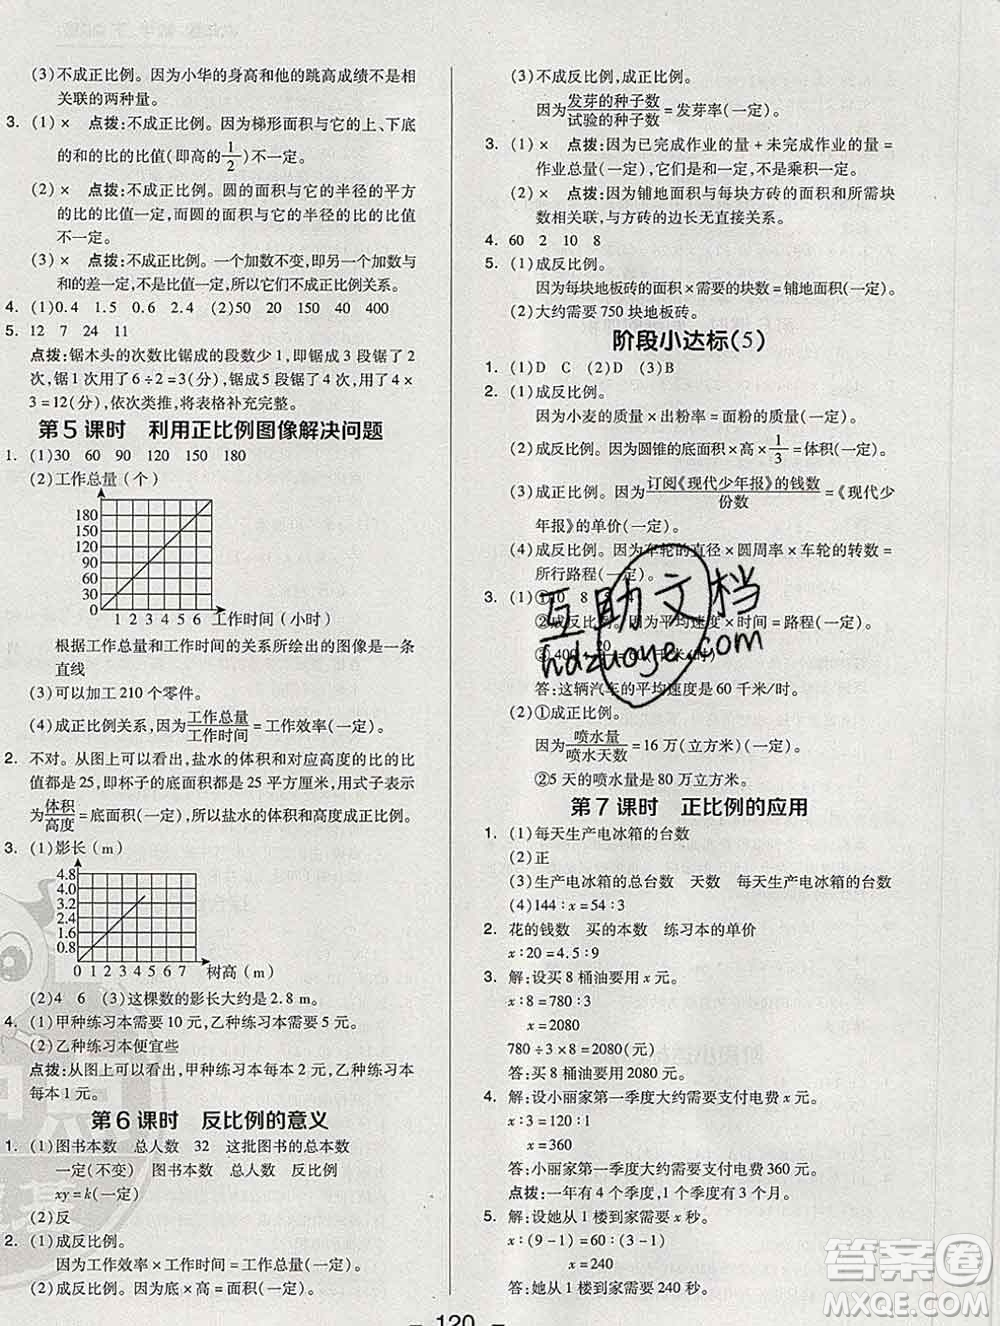 (3)不成正比例。因为小华的身高和他的跳高成绩不是相
关联的两种量。
3. (1)× 点拨:不成正比例。因为梯形面积与它的上、下底
的和的比的比值(即高的1/2)不一定。
(2)× 点拨:不成正比例。圆的面积与它的半径的平方
的比的比值一定,而圆的面积与它的半径的比的比值
不一定。
(3)× 点拨:不成正比例。一个加数不变,即另一个加数
和的差一定,不是比值一定,所以它们不成正比例关系。
4. (1)0.4 1.5 0.6 2.4 (2)50 20 150 400
5. 12 7 24 11
点拨:锯木头的次数比锯成的段数少1,即锯成3段锯了2
次,锯1次用了6÷2=3(分),锯成5段锯了4次,用了4×
3=12(分),依次类推,将表格补充完整。
第5课时 利用正比例图像解决问题
1. (1)30 60 90 120 150 180
(2)工作总量(个)
180
150
120
90
60
30
0 1 2 3 4 5 6 工作时间(小时)
根据工作总量和工作时间的关系所绘出的图像是一条
直线
(3)可以加工210个零件。
(4)成正比例关系,因为工作总量/工作时间=工作效率(一定)。
2. 不对。从图上可以看出,盐水的体积和对应高度的比的比
值都是25,即杯子的底面积都是25平方厘米,用式子表示
为体积/高度=底面积(一定),所以盐水的体积和高度成正比例。
3. (1)影长(m)
4.8
4.0
3.2
2.4
1.6
0.8
0 1 2 3 4 5 6 7 树高(m)
(2)4 6 (3)这棵数的影长大约是2.8m。
4. (1)甲种练习本需要10元,乙种练习本需要5元。
(2)乙种练习本便宜些
点拨:从图上可以看出,甲种练习本每本2元,乙种练习本
每本1元。
第6课时 反比例的意义
1. (1)图书本数 总人数 32 这批图书的总本数
一定(不变) 图书本数 总人数 反比例
xy=k(一定)
(2)反
2. (1)成反比例。
因为工作效率×工作时间=工作总量(一定)。
(2)成反比例。因为底×高=面积(一定)。
(3)不成反比例,成正比例。
因为发芽的种子数/试验的种子数=发芽率(一定)。
3. (1)× 点拨:因为已完成作业的量+未完成作业的量=
作业总量(一定),它们是和一定,不是乘积一定。
(2)× 点拨:因为铺地面积与每块方砖的面积和所需块
数相关联,与方砖的边长无直接关系。
4. 60 2 10 8
5. (1)成反比例。
因为每块地板砖的面积×需要的块数=铺地面积(一定)。
(2)大约需要750块地板砖。
阶段小达标(5)
1. (1)D C (2)D (3)B
2. (1)成反比例。
因为小麦的质量×出粉率=面粉的质量(一定)。
(2)成反比例。因为圆锥的底面积×高×1/3=体积(一定)。
(3)成正比例。因为订阅《现代少年报》的钱数/份数=《现代少
年报》的单价(一定)。
(4)成反比例。因为车轮的直径×圆周率×车轮的转数=
所行路程(一定)。
3. (1)①10 8 5 4
②成反比例。因为平均速度×时间=路程(一定)
答:这辆汽车的平均速度是60千米/时。
(2)①成正比例。
因为喷水量/喷水天数=16万(立方米)(一定)。
②5天的喷水量是80万立方米。
第7课时 正比例的应用
1. (1)每天生产电冰箱的台数
(2)正
(3)生产电冰箱的总台数 天数 每天生产电冰箱的台数
(4)144∶x=54∶3
2. 花的钱数 买的本数 练习本的单价
x∶20=4.5∶9
3. 解:设买8桶油要用x元。
x∶8=780∶3
x=2080
780÷3×8=2080(元)
答:买8桶油要用2080元。
4. 解:设小丽家第一季度大约要支付电费x元。
x∶3=120∶1
x=360
答:小丽家第一季度大约需要支付电费360元。
点拨:一年有4个季度,1个季度有3个月。
5. 解:设她从1楼到家需要用x秒。
x∶(9-1)=60∶(3-1)
x=240
答:她从1楼到家需要用240秒。
- 120 -
互助文档
hdzuoye.com
答案圈
MXQE.COM